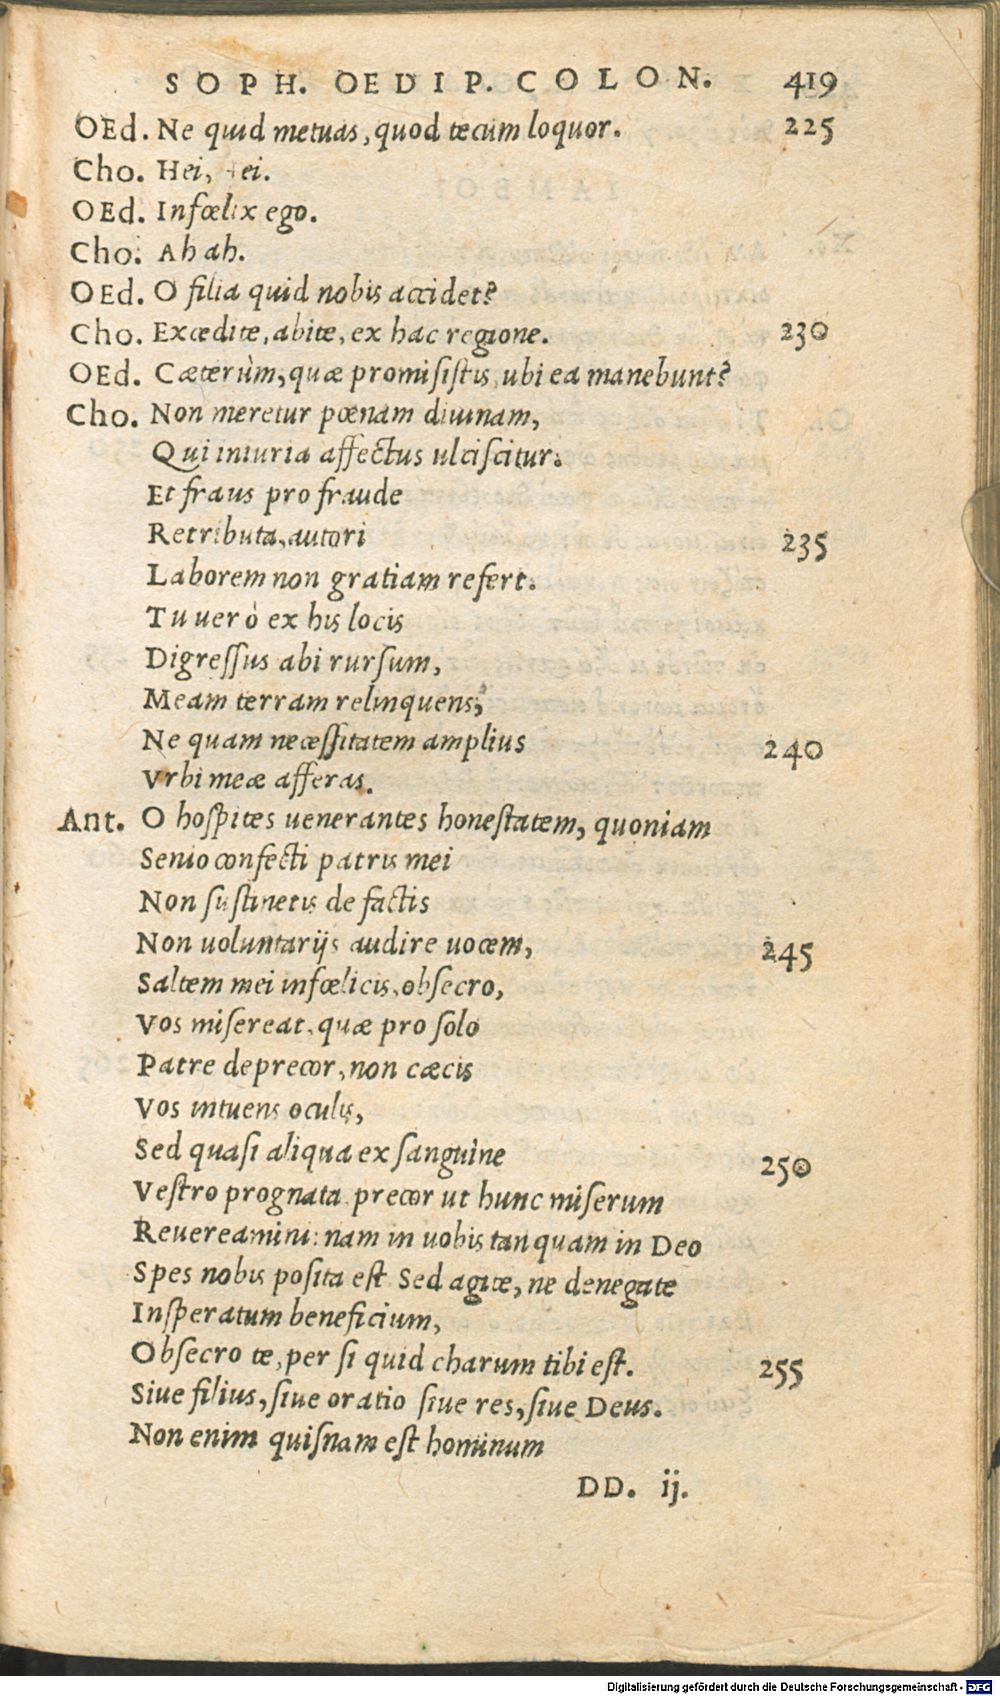 SOPH. OEDIP. COLON. 419
OEd. Ne quid metuas, quod tecum loquor. 225
Cho. Hei, ei.
OEd. Infœlix ego.
Cho. Ah ah.
OEd. O filia quid nobis accidet?
Cho. Excedite, abite, ex hac regione. 230
OEd. Cæterùm, quæ promisistis, ubi ea manebunt?
Cho. Non meretur pœnam diuinam,
Qui iniuria affectus ulciscitur:
Et fraus pro fraude
Retributa, autori 235
Laborem non gratiam refert.
Tu uerò ex his locis
Digressus abi rursum,
Meam terram relinquens;
Ne quam necessitatem amplius 240
Vrbi meæ afferas.
Ant. O hospites uenerantes honestatem, quoniam
Senio confecti patris mei
Non sustinetis de factis
Non uoluntarijs audire uocem, 245
Saltem mei infœlicis, obsecro,
Vos misereat, quæ pro solo
Patre deprecor, non cæcis
Vos intuens oculis,
Sed quasi aliqua ex sanguine 250
Vestro prognata precor ut hunc miserum
Reuereamini: nam in uobis tanquam in Deo
Spes nobis posita est Sed agite, ne denegate
Insperatum beneficium,
Obsecro te, per si quid charum tibi est. 255
Siue filius, siue oratio siue res, siue Deus.
Non enim quisnam est hominum
DD. ij.
Digitalisierung gefördert durch die Deutsche Forschungsgemeinschaft - DFG